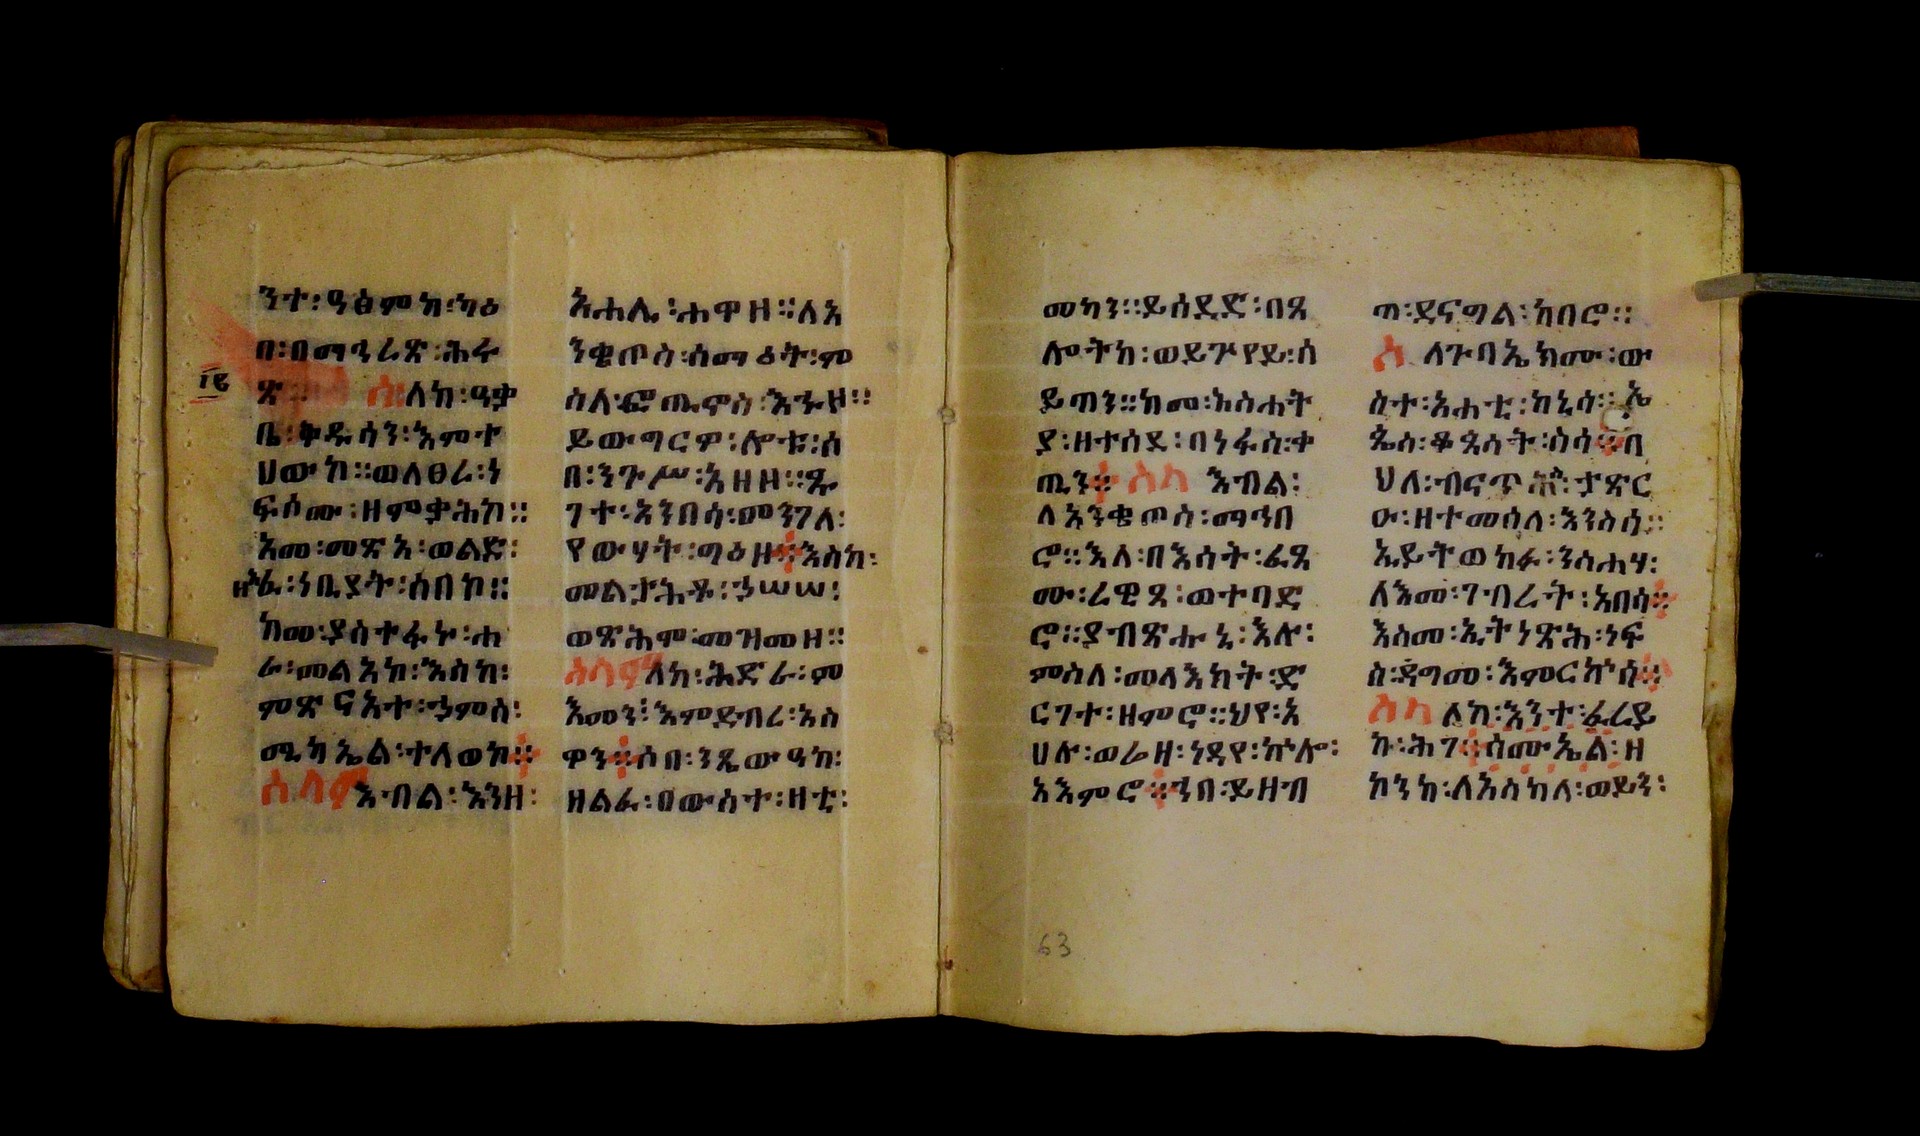 ንተ፡ዓፅምከ፡ካዕ
በ፡በማኅረጽ፡ሕሩ
ጽ። ሰ፡ለከ፡ዓቃ
ቤ፡ቅዱሳን፡እምተ
ሀውከ። ወለፀራ፡ነ
ፍሶሙ፡ዘምቃሕከ።
አመ፡መጽአ፡ወልድ፡
ዘአፈ፡ነቢያት፡ሰበኮ።
ከመ፡ያስተፋኑ፡ሐ
ራ፡መልአከ፡እስከ፡
ምጽናአተ፡ኃምስ፡
ሚካኤል፡ተለወከ።
ሰላምእብል፡እንዘ፡
አሐሊ፡ሐዋዘ።ለአ
ንቂጦስ፡ሰማዕት፡ም
ስለ፡ፎጢኖስ፡እኁዞ።
ይውግርዎ፡ሎቱ፡ሰ
በ፡ንጉሥ፡አዘዘ።ጼ
ገተ፡አንበሳ፡መንገለ፡
የውሃት፡ግዕዙ።እስከ፡
መልታሕቶ፡ኃሠሠ፡
ወጽሕሞ፡መዝመዘ።
ሰላምለከ፡ሕድራ፡ም
እመን፡እምደብረ፡አስ
ዋን።ሶበ፡ንጼውዓከ፡
ዘልፈ፡በውስተ፡ዘቲ፡
መካን።ይሰደድ፡በጸ
ሎትከ፡ወይጕየይ፡ሰ
ይጣን።ከመ፡አስሐት
ያ፡ዘተሰደ፡በነፋስ፡ቀ
ጢን። ሰላ እብል፡
ለአንቂጦስ፡ማኅበ
ሮ።እለ፡በእሳት፡ፈጸ
ሙ፡ሩዊጸ፡ወተባድ
ሮ።ያብጽሑኒ፡እሎ፡
ምስለ፡መላእክት፡ድ
ርገተ፡ዘምሮ።ህየ፡አ
ሀሉ፡ወሬዘ፡ነዳየ፡ኵሎ፡
አእምሮ።ኀበ፡ይዘብ
ጣ፡ደናግል፡ከበሮ።
ሰ ለጉባኤክሙ፡ው
ስተ፡አሐቲ፡ከኒሳ። ኤ
ጴስ፡ቆጶሳት፡ስሳ።በ
ሀለ፡ብናጥሕ፡ታጽር
ዑ፡ዘተመሰለ፡እንስሳ።
ኢይትወከፉ፡ንስሐሃ፡
ለእመ፡ገብረት፡አበሳ።
እስመ፡ኢትነጽሕ፡ነፍ
ስ፡ዳግመ፡እምርኵሳ።
ሰላ ለከ፡እንተ፡ፈረይ
ከ፡ሕገ።ሰሙኤል፡ዘ
ኮንከ፡ለአስካለ፡ወይን፡
63